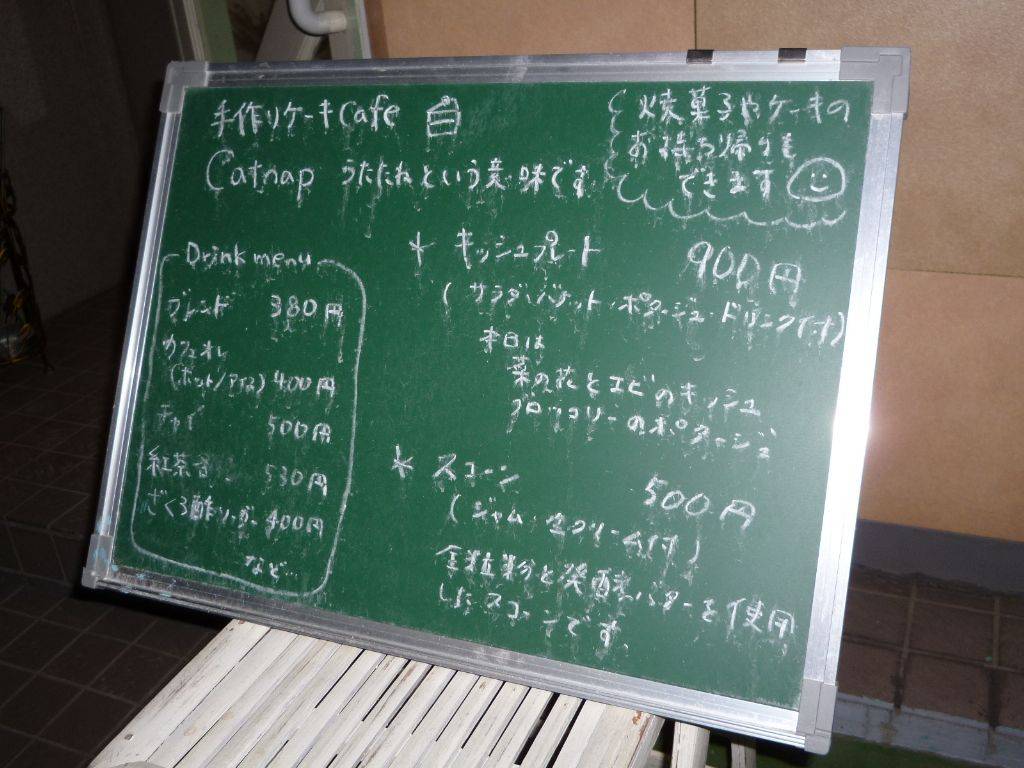 手作りケーキCafe
Catnap うたたねという意味です
焼菓子やケーキの
お持ち帰りも
できます
Drink menu
ブレンド 380円
カフェオレ
(ホット/アイス) 400円
チャイ 500円
紅茶各 530円
ざくろ酢ソーダー 400円
など…
* キッシュプレート 900円
(サラダ・バケット・ポタージュ・ドリンク付)
本日は
菜の花とエビのキッシュ
ブロッコリーのポタージュ
* スコーン 500円
(ジャム・生クリーム付)
全粒粉と発酵バターを使用
したスコーンです。